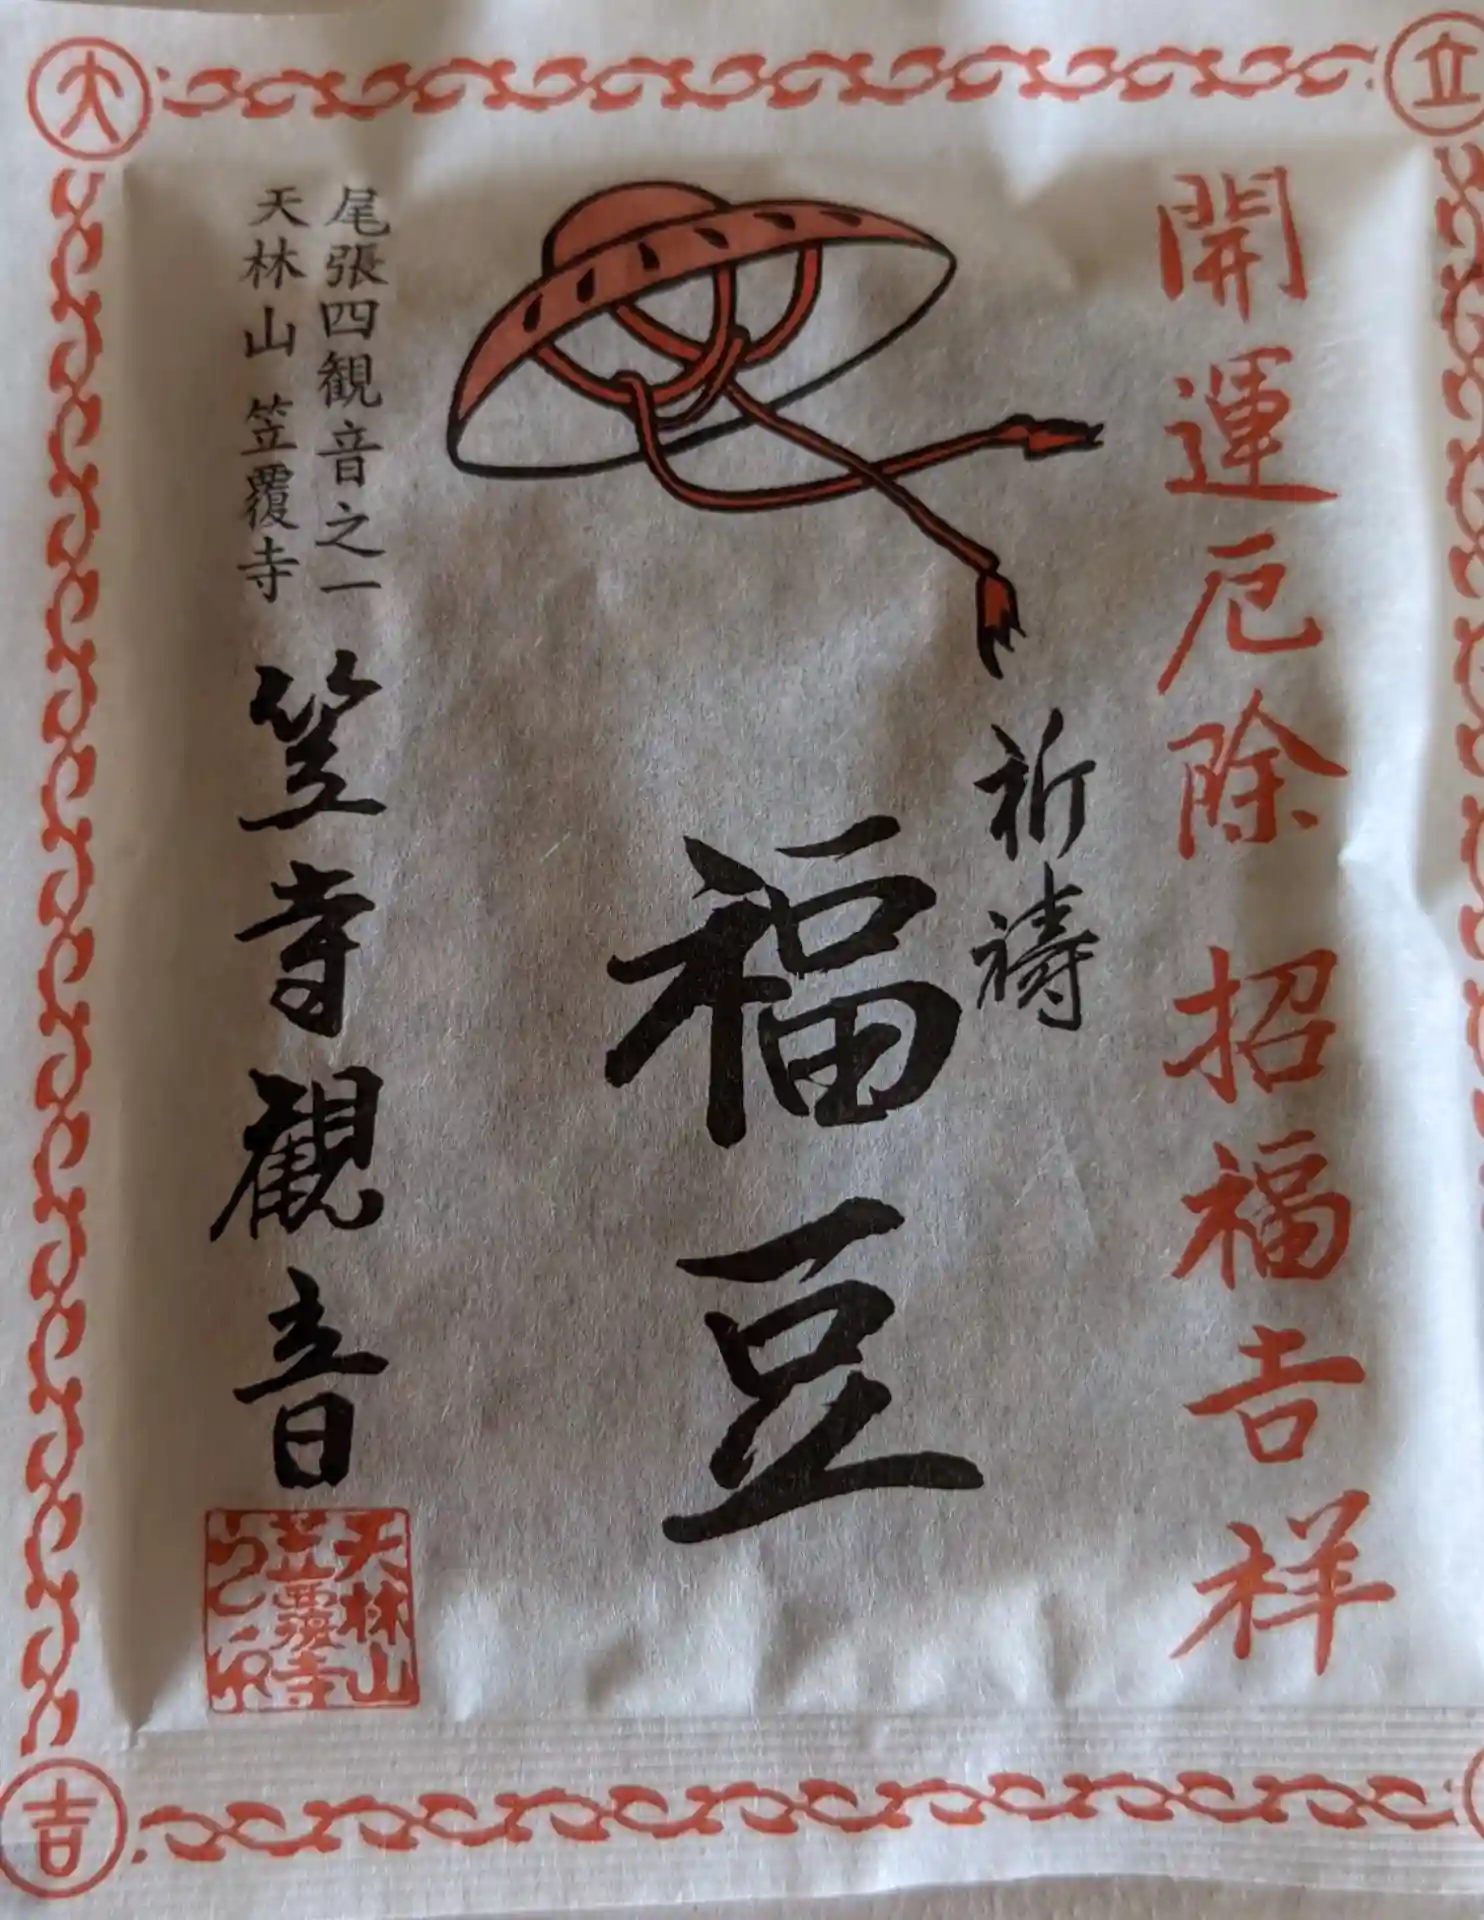 立
大
開運厄除 招福吉祥
祈禱
福豆
尾張四観音之一
天林山 笠覆寺
笠寺観音
天林山
笠覆寺
吉